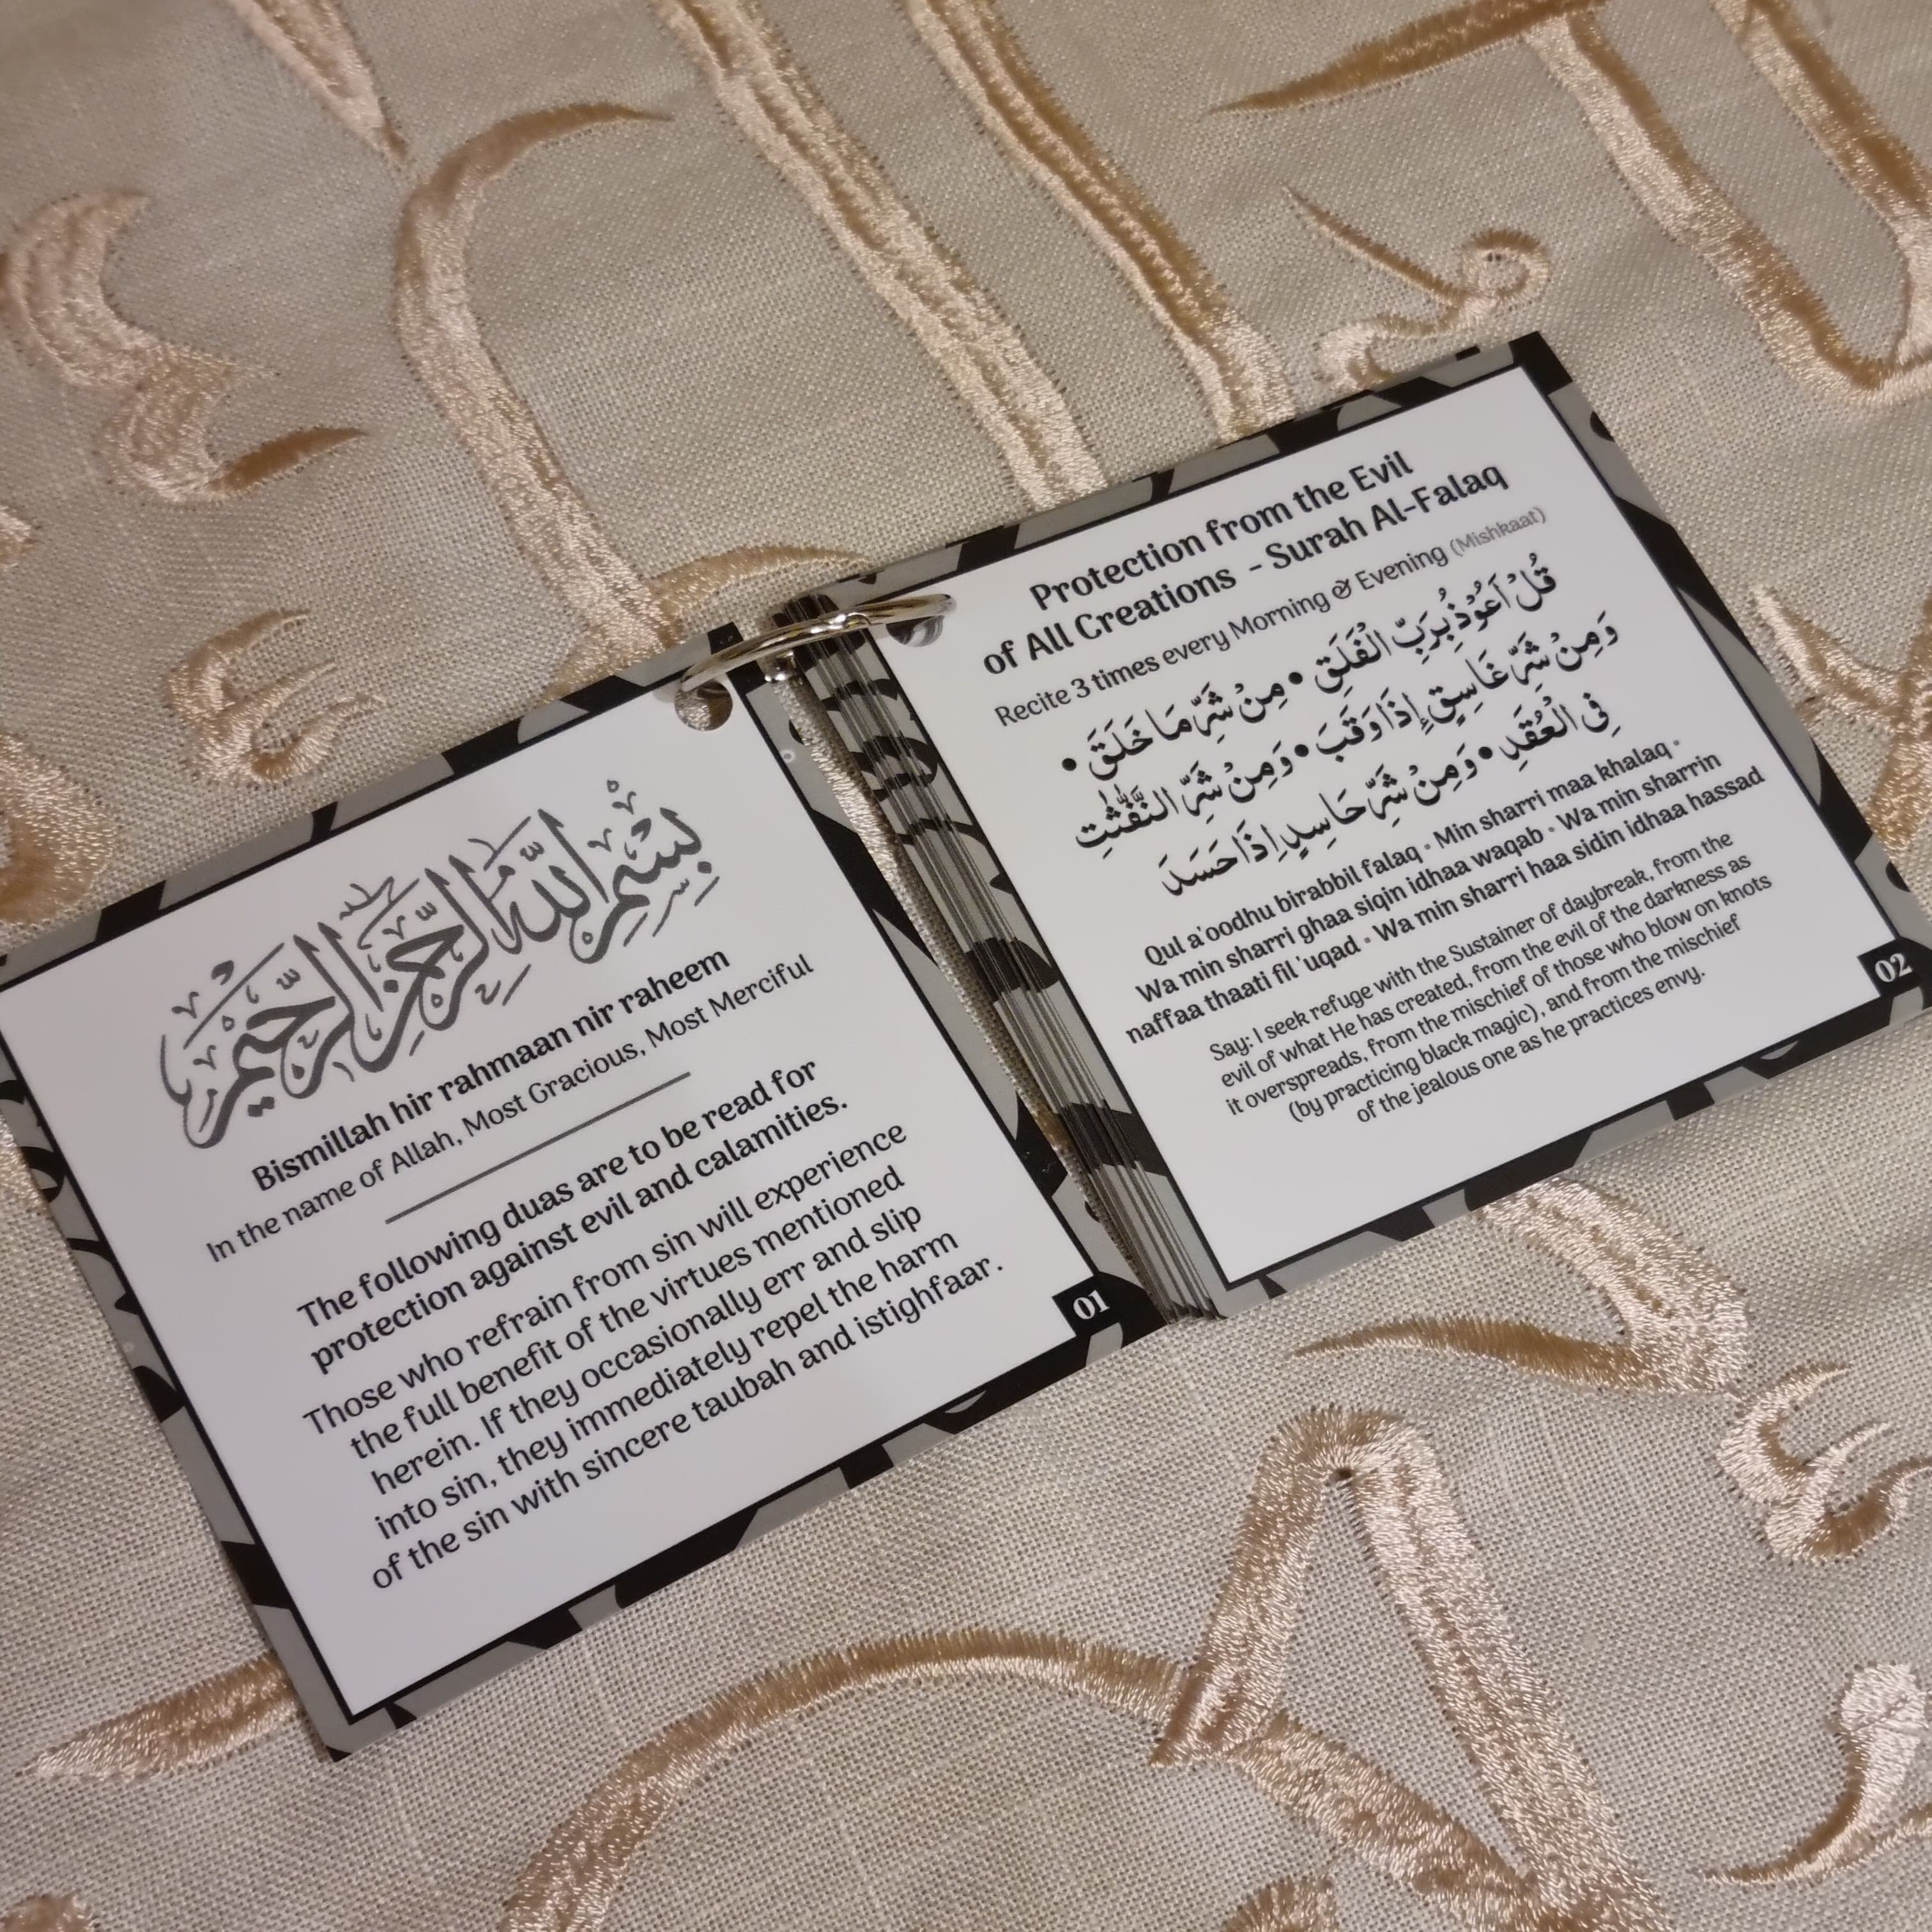 بِسْمِ اللّٰهِ الرَّحْمٰنِ الرَّحِيْمِ
Bismillah hir rahmaan nir raheem
In the name of Allah, Most Gracious, Most Merciful
The following duas are to be read for
protection against evil and calamities.
Those who refrain from sin will experience
the full benefit of the virtues mentioned
herein. If they occasionally err and slip
into sin, they immediately repel the harm
of the sin with sincere taubah and istighfaar.
01
Protection from the Evil
of All Creations - Surah Al-Falaq
Recite 3 times every Morning & Evening (Mishkaat)
قُلْ اَعُوْذُ بِرَبِّ الْفَلَقِ • مِنْ شَرِّ مَا خَلَقَ •
وَمِنْ شَرِّ غَاسِقٍ إِذَا وَقَبَ • وَمِنْ شَرِّ النَّفّٰثٰتِ
فِى الْعُقَدِ • وَمِنْ شَرِّ حَاسِدٍ اِذَا حَسَدَ
Qul a'oodhu birabbil falaq • Min sharri maa khalaq •
Wa min sharri ghaa siqin idhaa waqab • Wa min sharrin
naffaa thaati fil 'uqad • Wa min sharri haa sidin idhaa hassad
Say: I seek refuge with the Sustainer of daybreak, from the
evil of what He has created, from the evil of the darkness as
it overspreads, from the mischief of those who blow on knots
(by practicing black magic), and from the mischief
of the jealous one as he practices envy.
02